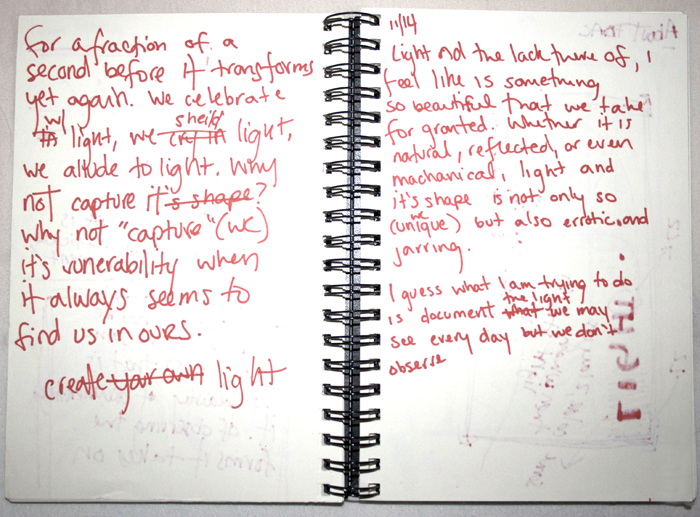 for a fraction of a
second before it transforms
yet again. We celebrate
w/ sheild
light, we light,
we allude to light. Why
not capture it's shape?
why not "capture" (wc)
it's vunerability when
it always seems to
find us in ours.
create your own light
11/14
Light and the lack there of, I
feel like is something
so beautiful that we take
for granted. Whether it is
natural, reflected, or even
machanical, light and
it's shape is not only so
wc
(unique) but also erratic, and
jarring.
I guess what I am trying to do
the light
is document that we may
see every day but we don't
observe
LIGHT.